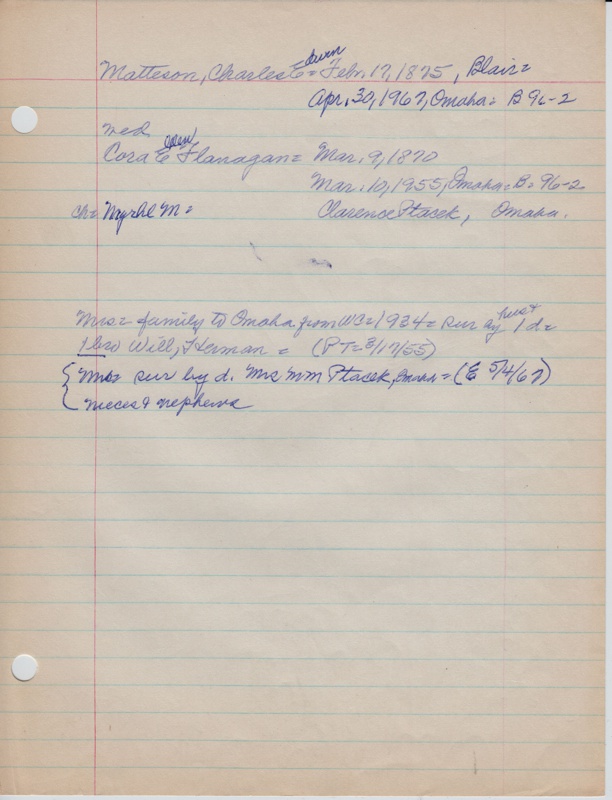 Matteson, Charles E = Febr. 17, 1875, Blair =
Apr. 30, 1967, Omaha = B 96-2
wed
Cora E Flanagan = Mar. 9, 1870
Mar. 10, 1955, Omaha = B = 96-2
ch = Myrtle M = Clarence Ptacek, Omaha.
Mrs = family to Omaha from WC = 1934 = sur by hus & 1 d =
1 bro Will, Herman = (PT = 3/17/55)
sur by d. Mrs MM Ptacek, Omaha = (E 5/4/67)
nieces & nephews